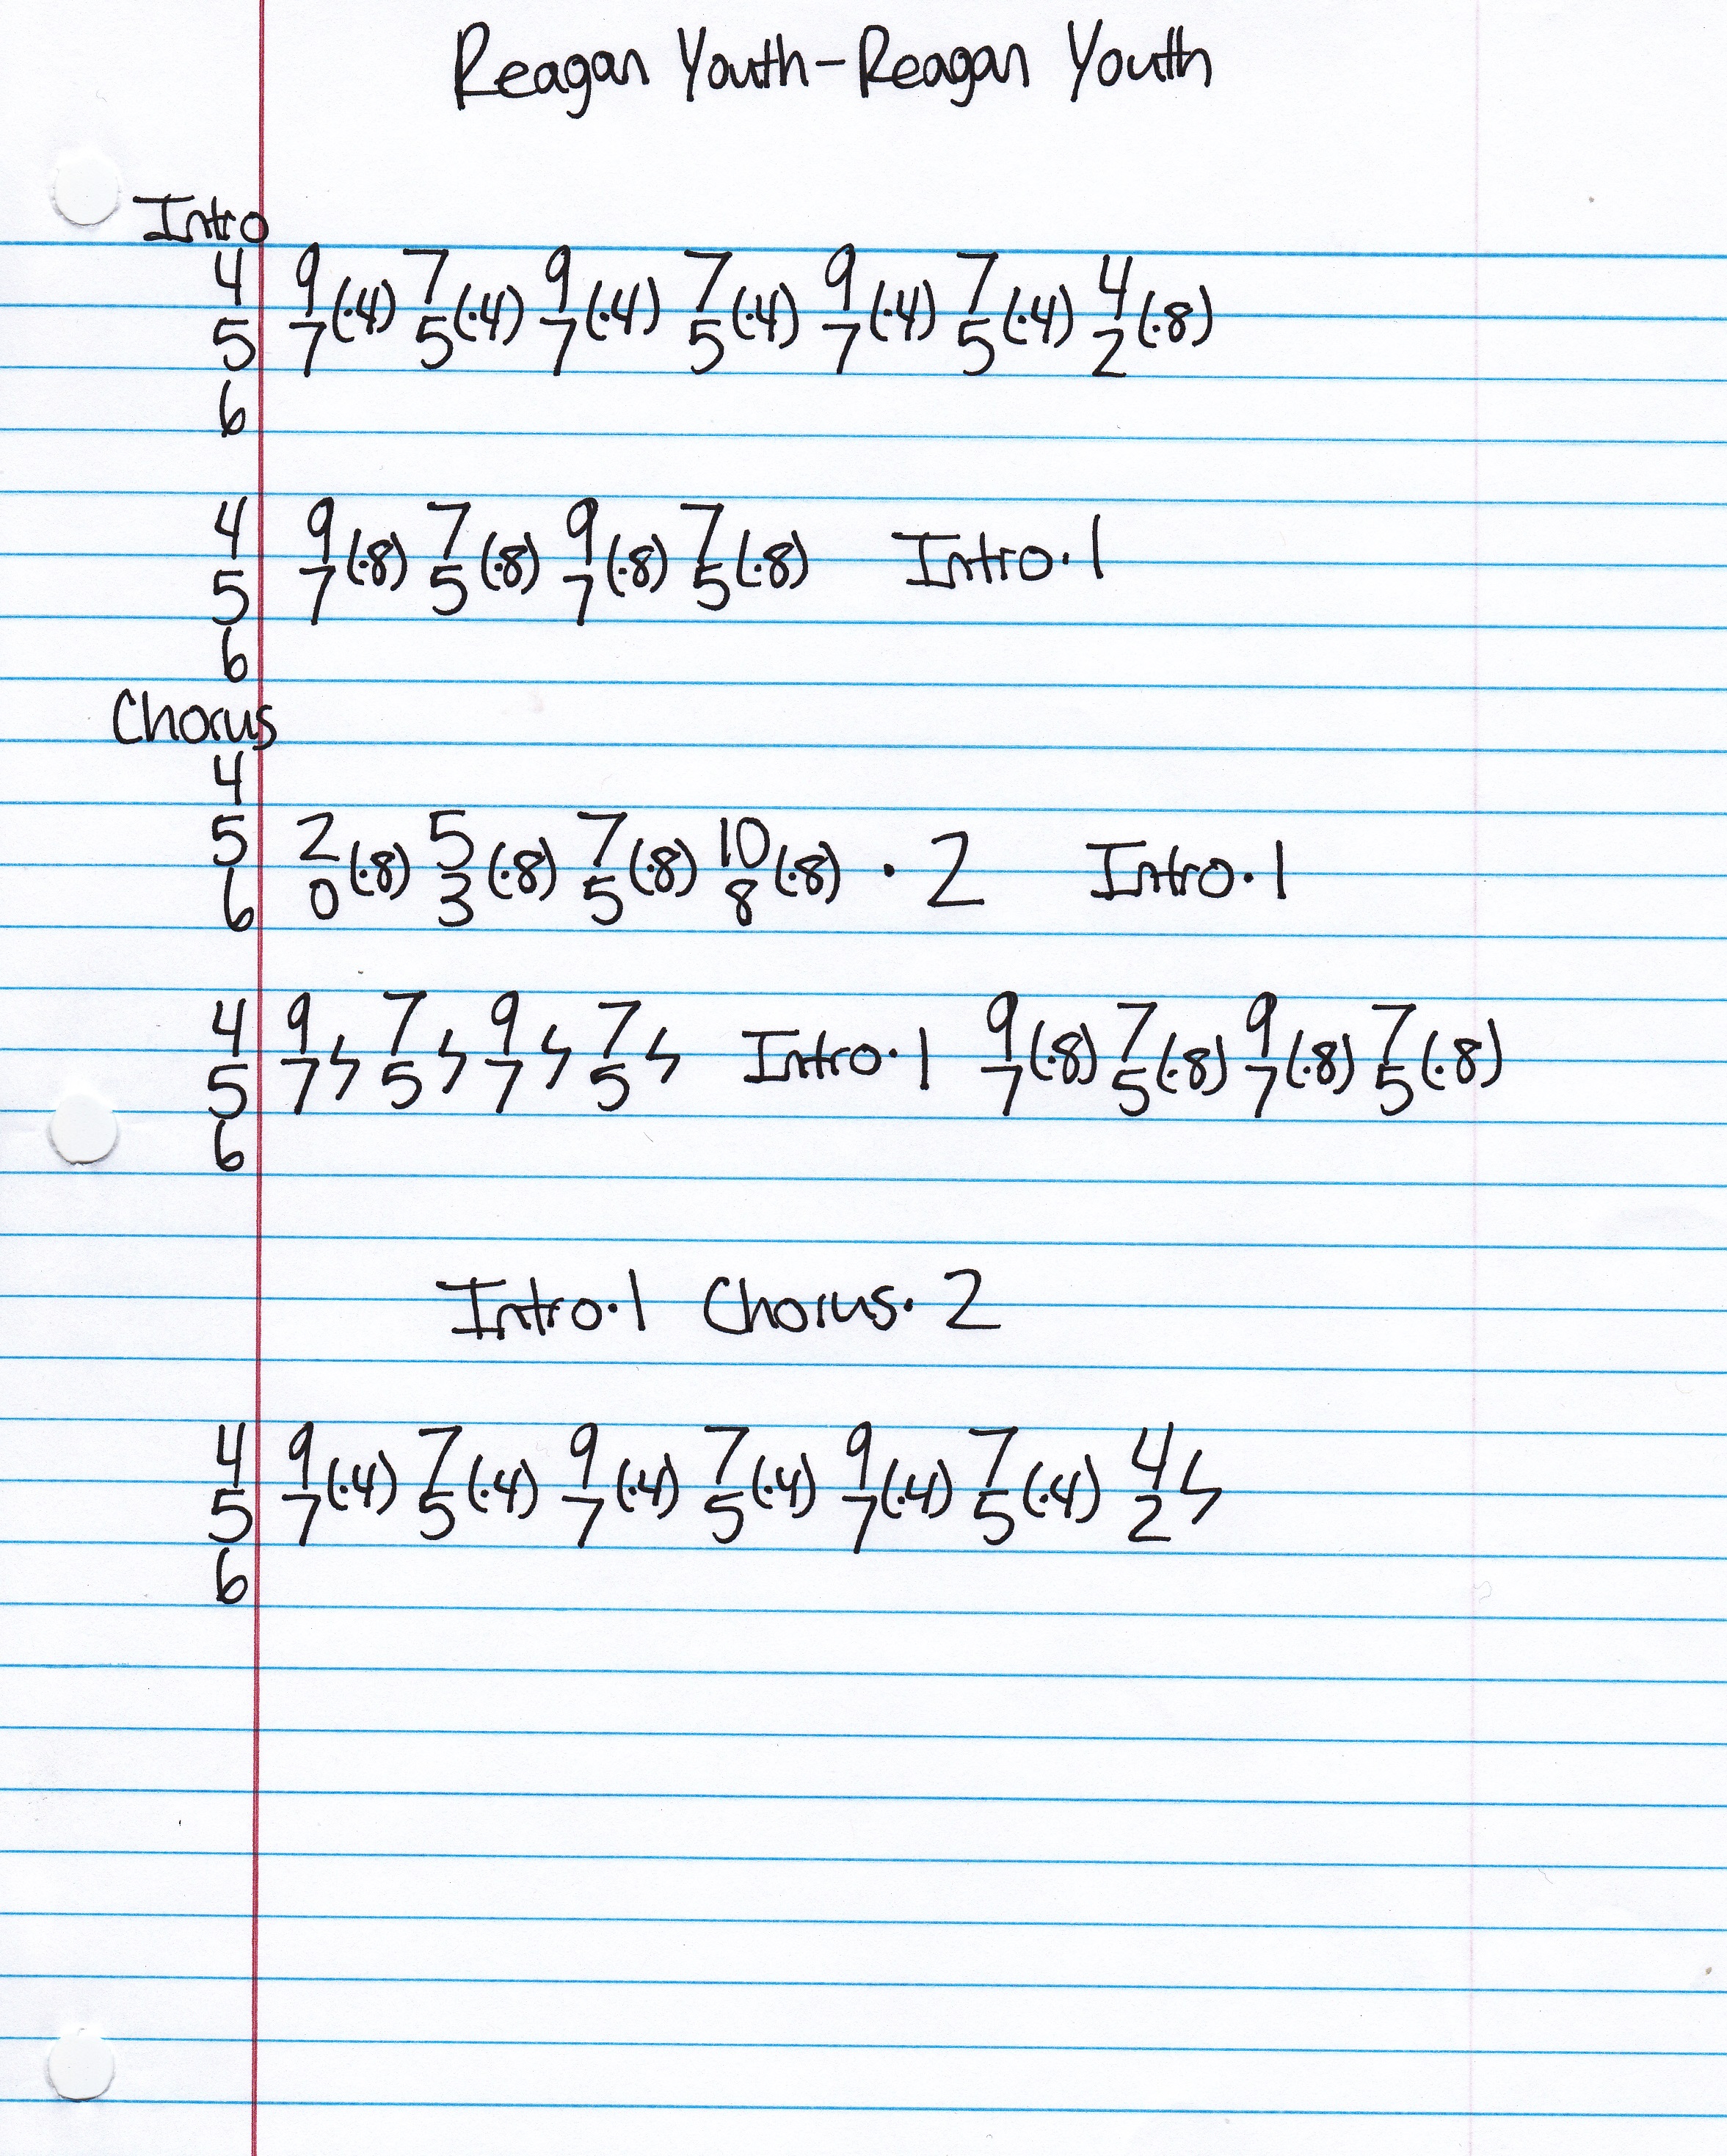 Reagan Youth-Reagan Youth
Intro
4 9 7 9 7 9 7 4
(·4) (·4) (·4) (·4) (·4) (·4) (·8)
5 7 5 7 5 7 5 2
6
4 9 7 9 7
(·8) (·8) (·8) (·8) Intro·1
5 7 5 7 5
6
Chorus
4
5 2 5 7 10
(·8) (·8) (·8) (·8) · 2 Intro·1
6 0 3 5 8
4 9 7 9 7 9 7 9 7
ϟ ϟ ϟ ϟ Intro·1 (·8) (·8) (·8) (·8)
5 7 5 7 5 7 5 7 5
6
Intro·1 Chorus·2
4 9 7 9 7 9 7 4
(·4) (·4) (·4) (·4) (·4) (·4) ϟ
5 7 5 7 5 7 5 2
6